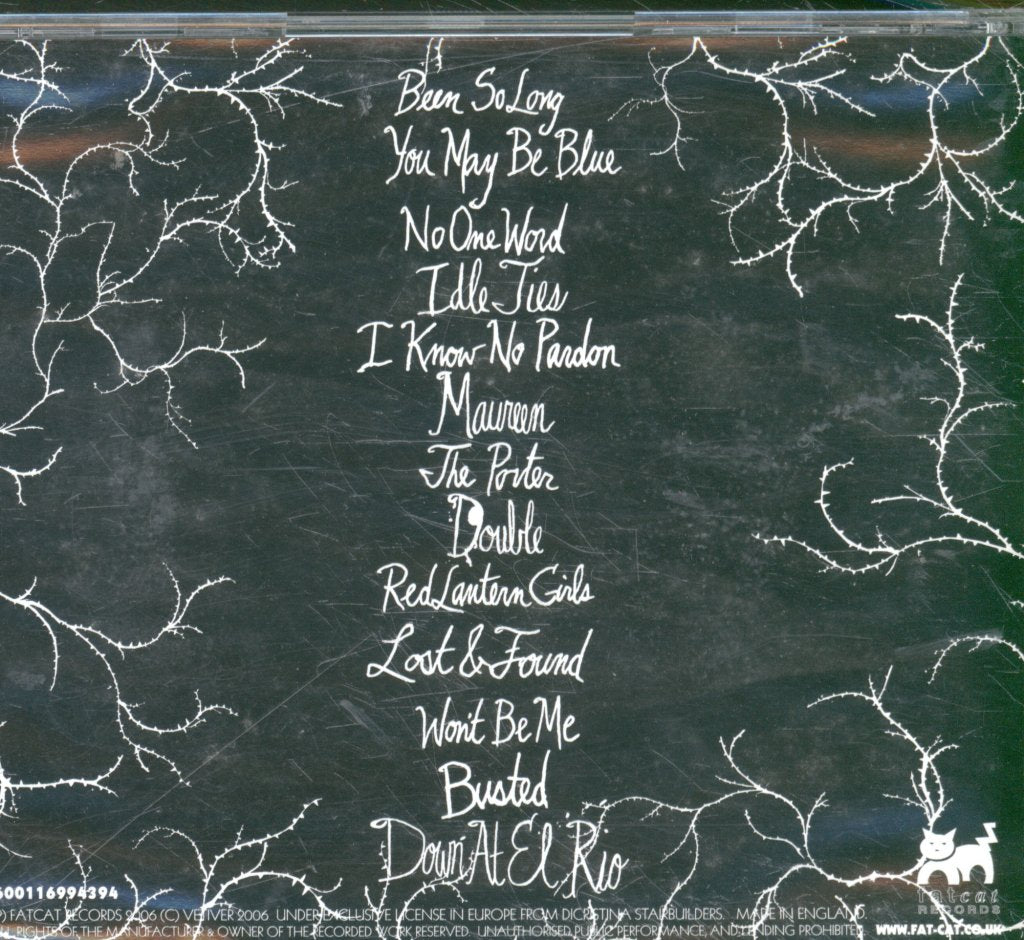 Been So Long
You May Be Blue
No One Word
Idle Ties
I Know No Pardon
Maureen
The Porter
Double
Red Lantern Girls
Lost & Found
Won't Be Me
Busted
Down At El Rio
600116994394
fatcat
RECORDS
(P) FATCAT RECORDS 2006 (C) VETIVER 2006 UNDER EXCLUSIVE LICENSE IN EUROPE FROM DICRISTINA STAIRBUILDERS. MADE IN ENGLAND.
ALL RIGHTS OF THE MANUFACTURER & OWNER OF THE RECORDED WORK RESERVED UNAUTHORISED PUBLIC PERFORMANCE, AND LENDING PROHIBITED.
WWW.FAT-CAT.CO.UK